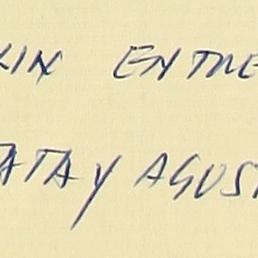 KIN ENTRE
ATA Y AGOS